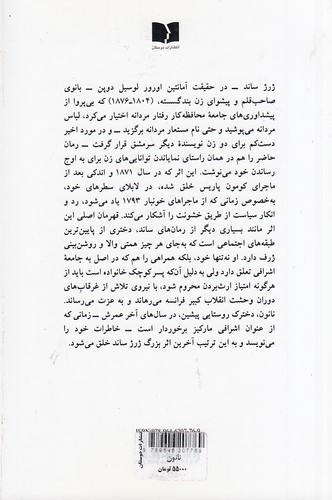 انتشارات دوستان
ژرژ ساند ــ در حقیقت آمانتین اورور لوسیل دوپن ــ بانوی
صاحب‌قلم و پیشوای زن بندگسسته، (۱۸۰۴ـ۱۸۷۶) که بی‌پروا از
پیشداوری‌های جامعهٔ محافظه‌کار رفتار مردانه اختیار می‌کرد، لباس
مردانه می‌پوشید و حتی نام مستعار مردانه برگزید ــ و در مورد اخیر
دست‌کم برای دو زن نویسندهٔ دیگر سرمشق قرار گرفت ــ رمان
حاضر را هم در همان راستای نمایاندن توانایی‌های زن برای به اوج
رساندن خود می‌نوشت. این اثر که در سال ۱۸۷۱ و اندکی بعد از
ماجرای کومون پاریس خلق شده، در لابلای سطرهای خود،
به‌خصوص زمانی که از ماجراهای خونبار ۱۷۹۳ یاد می‌شود، رد و
انکار سیاست از طریق خشونت را آشکار می‌کند. قهرمان اصلی این
اثر مانند بسیاری دیگر از رمان‌های ساند، دختری از پایین‌ترین
طبقه‌های اجتماعی است که به‌جای هر چیز همتی والا و روشن‌بینی
ژرف دارد. او نه‌تنها خود، بلکه همراهی را هم که در اصل به جامعهٔ
اشرافی تعلق دارد ولی به دلیل آن‌که پسر کوچک خانواده است باید از
هرگونه امتیاز ارث‌بردن محروم شود، با نیروی تلاش از غرقاب‌های
دوران وحشت انقلاب کبیر فرانسه می‌رهاند و به عزت می‌رساند.
نانون، دخترک روستایی پیشین، در سال‌های آخر عمرش ــ زمانی که
از عنوان اشرافی مارکیز برخوردار است ــ خاطرات خود را
می‌نویسد و به این ترتیب آخرین اثر بزرگ ژرژ ساند خلق می‌شود.
ISBN 978-964-6207-76-9
انتشارات دوستان
نانون
۵۵۰۰۰ تومان